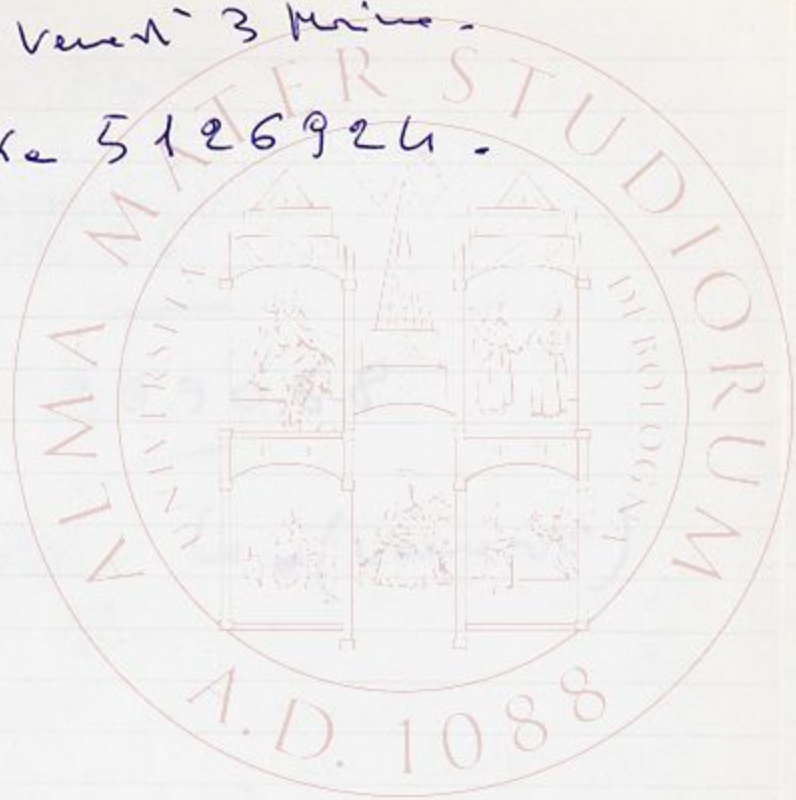 Venerdì 3
5126924.
ALMA MATER STUDIORUM
UNIVERSITÀ DI BOLOGNA
A.D. 1088